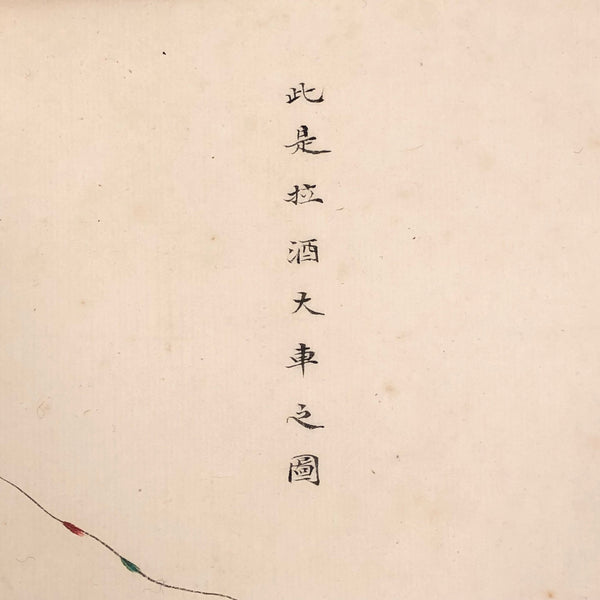 此是拉酒大車之圖